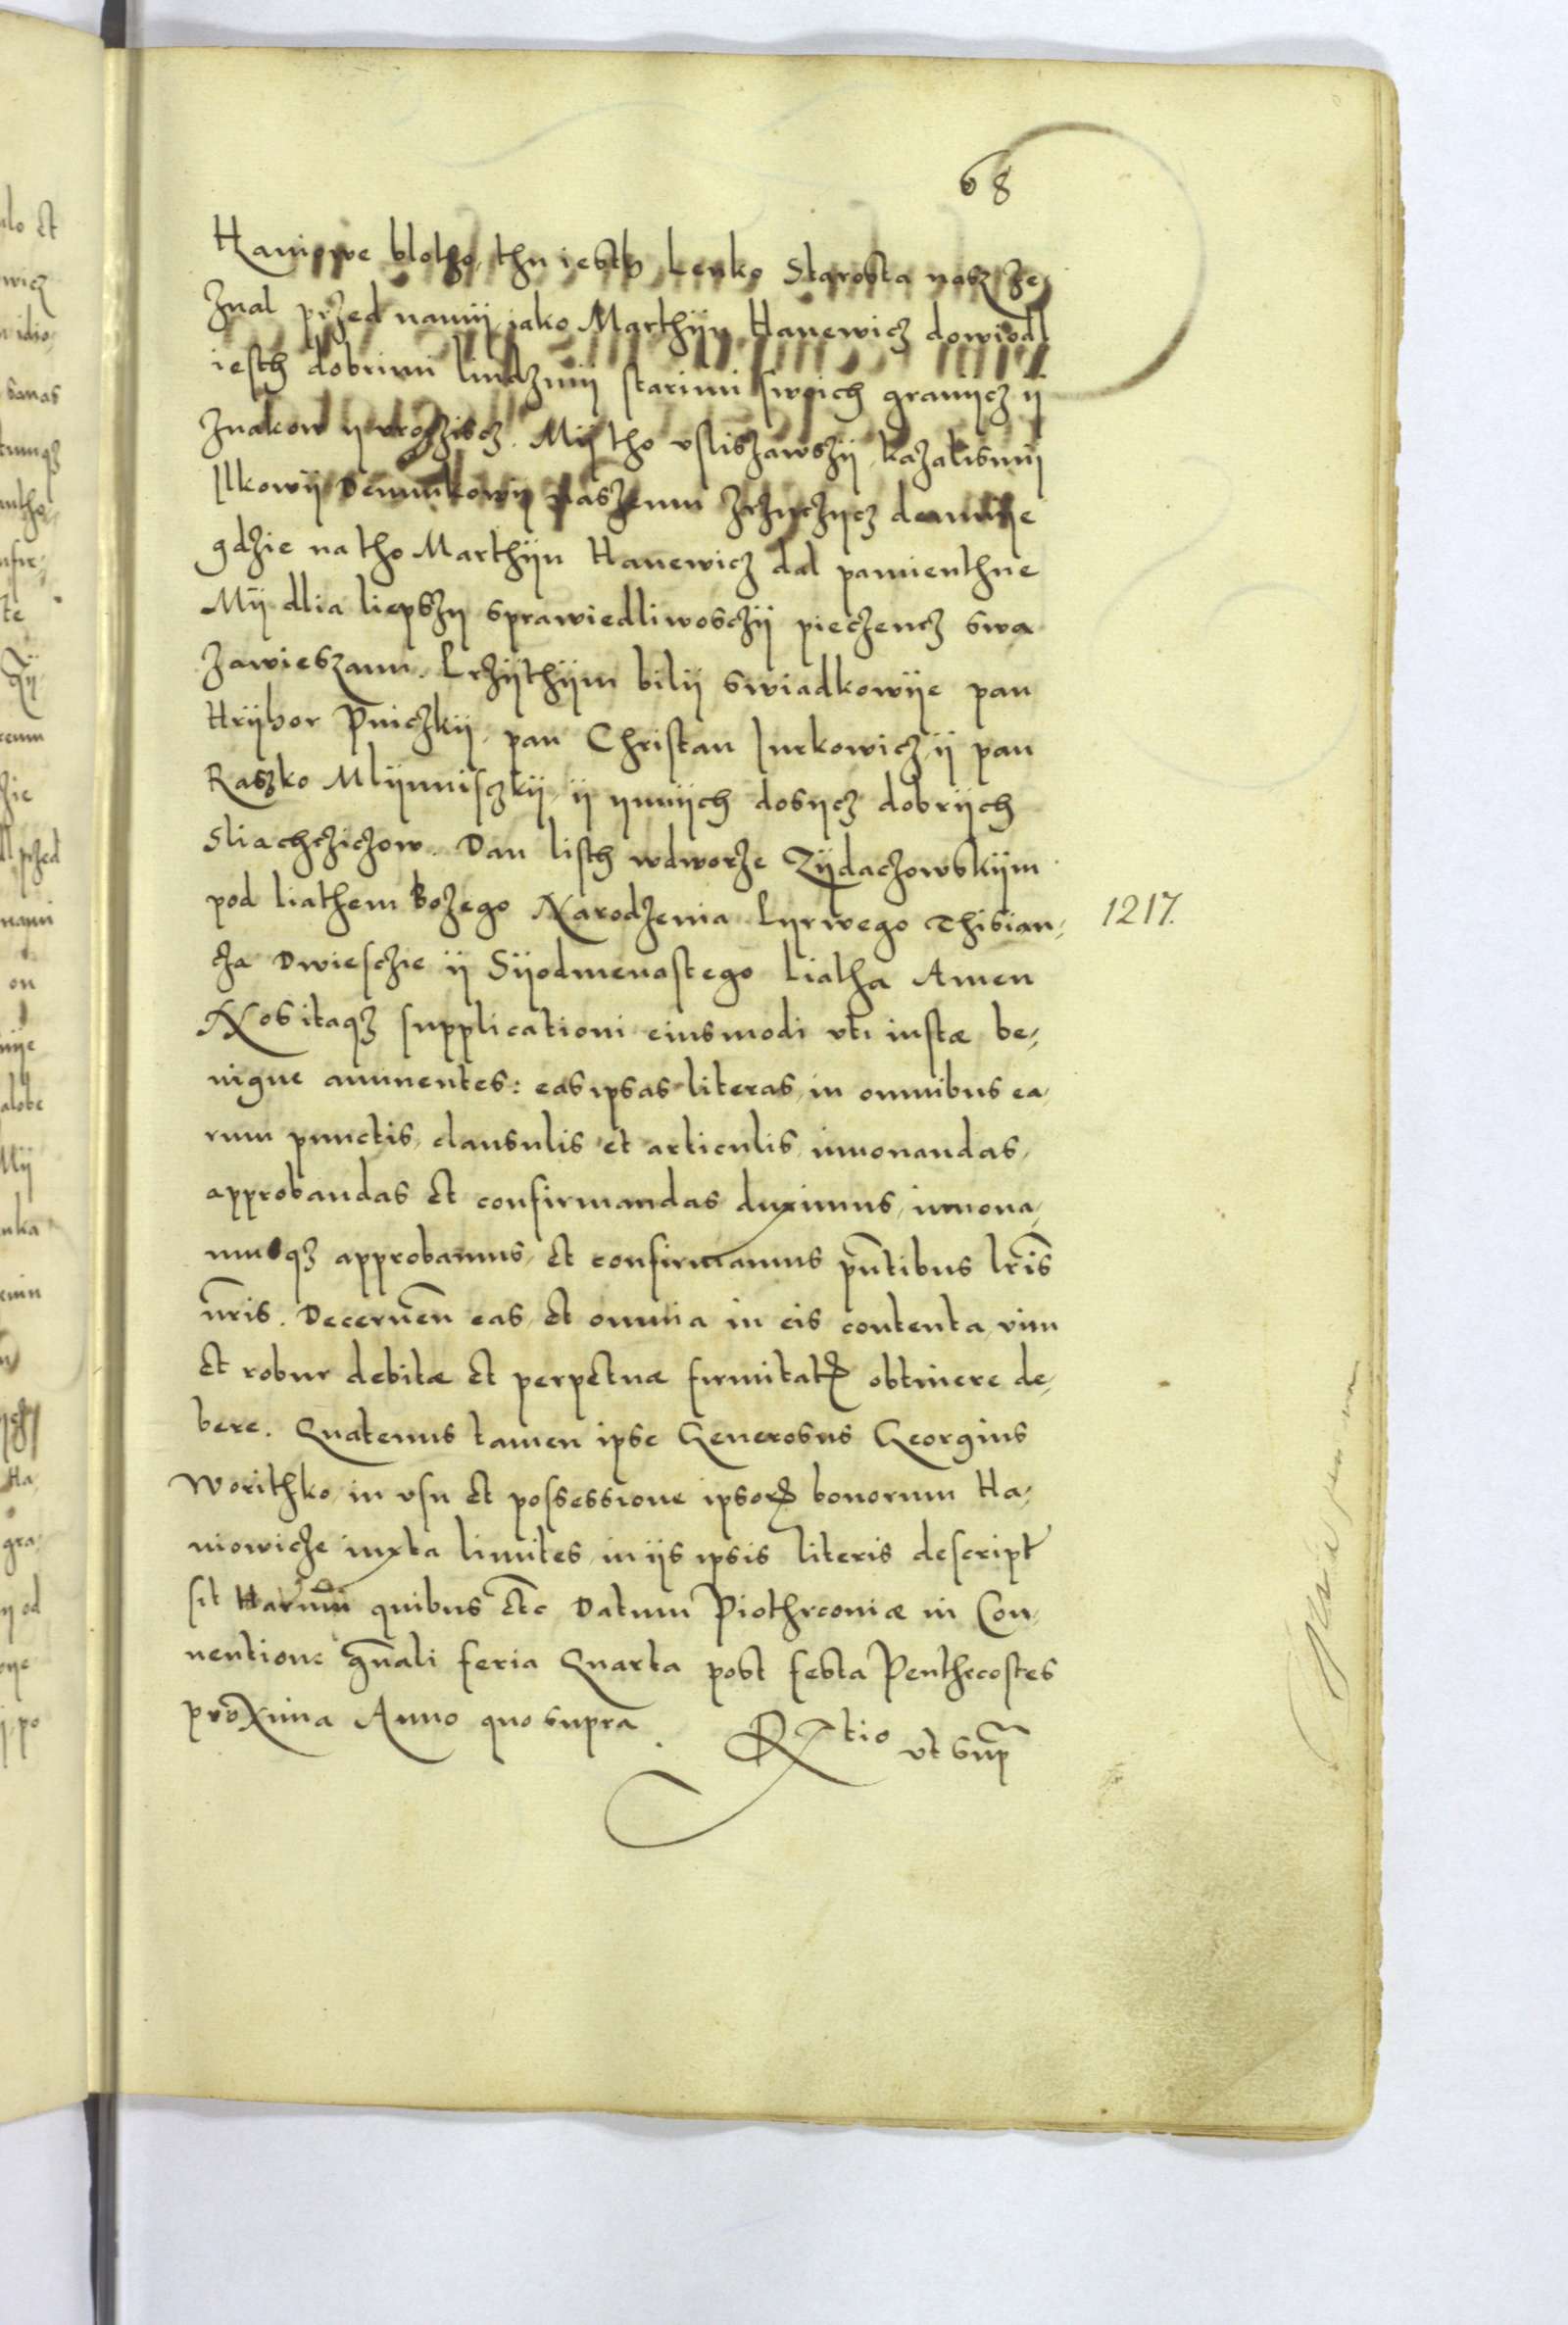 68
Haniowe blotho, thu iesth Lenko Starosta nasz ze,
znal przed namÿ iako Marthÿn Hanewicz dowiodl
iesth dobrimi ludzmÿ starimi swoich granÿcz ÿ
znakow ÿ vroziscz. Mÿ tho vsliszawszÿ, kazalismÿ
Ilkowÿ Demnikowÿ naszemu
gdzie na tho Marthÿn Hanewicz dal pamienthne
Mÿ dlia liepszÿ sprawiedliwosczÿ pieczencz swa
zawieszami. Przÿthÿm bilÿ swiadkowÿe pan
Hrÿhor Pniczkÿ, pan Christan Jurkowicz, ÿ pan
Raszko Mlÿnnisczkÿ, ÿ ynnÿch dosycz dobrÿch
Sliachcziczow. Dan listh wdworze Zÿdaczowskÿm
pod liathem Bozego Narodzenia Pyrwego Thisian,
1217.
cza Dwiesczie ÿ Sÿodmenastego liatha Amen
Nos itaq3 supplicationi eiusmodi vti iustæ be,
nigne annuentes: eas ipsas literas, in omnibus ea,
rum punctis, clausulis et articulis, innouandas,
approbandas et confirmandas duximus, innoua,
musq3 approbamus, et confirmamus pñtibus lris
nris. Decernen eas, et omnia in eis contenta, vim
et robur debitæ et perpetuæ firmitatis obtinere de,
bere. Quatenus tamen ipse Generosus Georgius
Worithko, in vsu et possessione ipsor bonorum Ha,
niowicze iuxta limites, in iis ipsis literis descript
sit Harum quibus etc Datum Piothrconiæ in Con,
uentione gñali feria Quarta post festa Penthecostes
proxima Anno quo supra.
Rtio vt sup